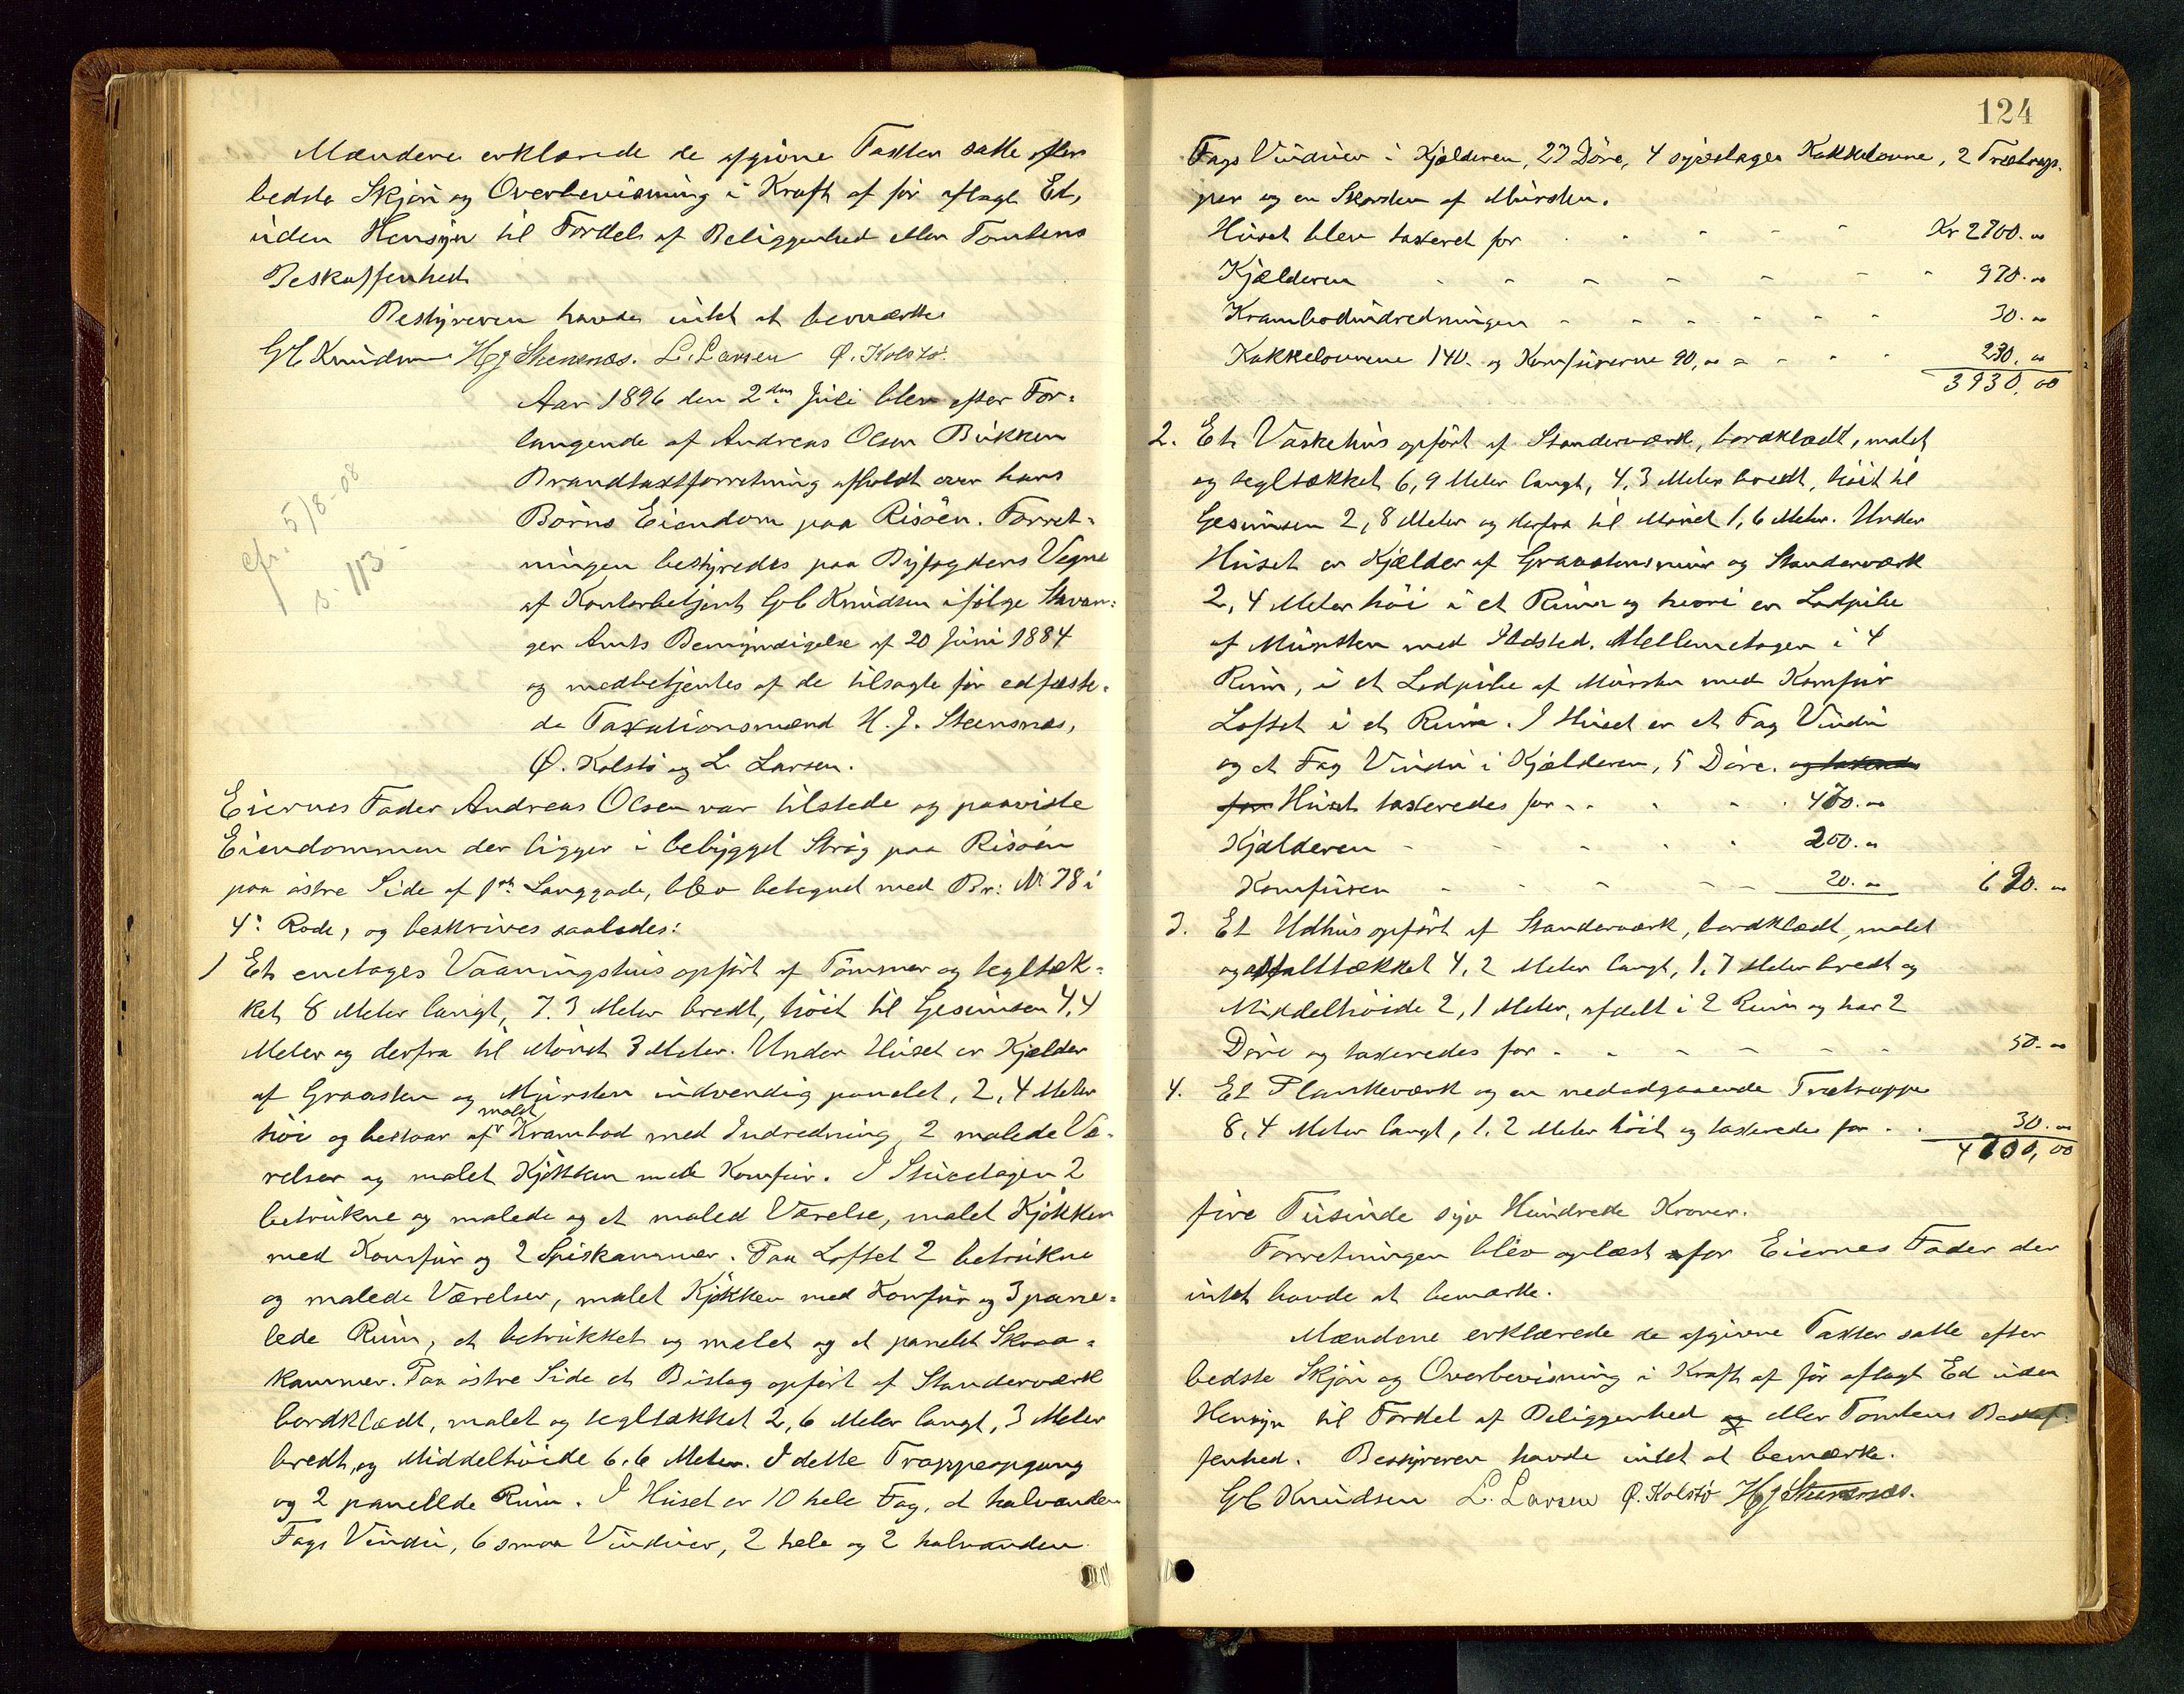 Mændene erklærede de afgivne Taxter satte efter
bedste Skjøn og Overbevisning i Kraft af før aflagt Ed,
uden Hensyn til Fordel af Beliggenhed eller Tomtens
Beskaffenhed.
Bestyreren havde intet at bemærke
GC Knudsen HJ Steensnæs. L. Larsen Ø. Kolstø.
Aar 1896 den 2den Juli blev efter For-
langende af Andreas Olsen Bukken
Brandtaxtforretning afholdt over hans
Børns Eiendom paa Risøen. Forret-
ningen bestyredes paa Byfogdens Vegne
af Kontorbetjent GC Knudsen ifølge Stavan-
ger Amts Bemyndigelse af 20 Juni 1884
og medbetjentes af de tilsagte før edfæste-
de Taxationsmænd H. J. Steensnæs,
Ø. Kolstø og L. Larsen.
cfr. 5/8-08
s. 113-
Eiernes Fader Andreas Olsen var tilstede og paaviste
Eiendommen der ligger i bebygget Strøg paa Risøen
paa østre Side af 1ste Langgade, blev betegnet med Br: № 78 i
4: Rode, og beskrives saaledes:
1 Et enetages Vaaningshus opført af Tømmer og tegltæk-
ket 8 Meter langt, 7.3 Meter bredt, høit til Gesimsen 4,4
Meter og derfra til Mønet 3 Meter. Under Huset er Kjælder
af Graasten og Mursten indvendig panelet, 2,4 Meter
høi og bestaar af malet Krambod med Indredning, 2 malede Væ-
relser og malet Kjøkken med Komfur. I Stueetagen 2
betrukne og malede og et maled Værelse, malet Kjøkken
med Komfur og 2 Spiskammer. Paa Loftet 2 betrukne
og malede Værelser, malet Kjøkken med Komfur og 3 pane-
lede Rum, et betrukket og malet og et panelet Skraa-
kammer. Paa østre Side et Bislag opført af Standerværk
bordklædt, malet og tegltækket 2,6 Meter langt, 3 Meter
bredt, og Middelhøide 6.6 Meter. I dette Trappeopgang
og 2 panellde Rum. I Huset er 10 hele Fag, et halvanden
Fags Vindu, 6 smaa Vinduer, 2 hele og 2 halvanden
124
Fags Vinduer i Kjælderen, 22 Døre, 4 Kakkelovne, 2 Trætrap-
per og en Skorsten af Mursten.
Huset blev taxeret for - - - - Kr 2700.00
Kjælderen - - - - - - - 970.00
Krambodindredningen - - - - - - 30.00
Kakkelovnene 140. og Komfurerne 90,00 - - - 230.00
3930,00
2. Et Vaskehus opført af Standerværk, bordklædt, malet
og tegltækket 6,9 Meter langt, 4.3 Meter bredt, høit til
Gesimsen 2,8 Meter og derfra til Mønet 1,6 Meter. Under
Huset er Kjælder af Graastensmur og Standerværk
2,4 Meter høi i et Rum og hvori en Lodpibe
af Mursten med Ildsted. Mellemetagen i 4
Rum, i et Lodpibe af Mursten med Komfur
Loftet i et Rum. I Huset er et Fag Vindu
og et Fag Vindu i Kjælderen, 5 Døre. og taxeredes
for Huset taxeredes for - - - - 470.00
Kjælderen - - - - - 200.00
Komfuren - - - - - 20.00 690.00
3. Et Udhus opført af Standerværk, bordklædt, malet
og asfalttækket 4,2 Meter langt, 1.7 Meter bredt og
Middelhøide 2,1 Meter, afdelt i 2 Rum og har 2
Døre og taxeredes for - - - - - - 50.00
4. Et Plankeværk og en nedadgaaende Trætrappe
8,4 Meter langt, 1,2 Meter høit og taxeredes for - - 30.00
4700,00
fire Tusinde syv Hundrede Kroner.
Forretningen blev oplæst for Eiernes Fader der
intet havde at bemærke.
Mændene erklærede de afgivne Taxter satte efter
bedste Skjøn og Overbevisning i Kraft af før aflagt Ed uden
Hensyn til Fordel af Beliggenhed og eller Tomtens Beskaf-
fenhed. Bestyreren havde intet at bemærke.
GC Knudsen L. Larsen Ø. Kolstø HJ Steensnæs.